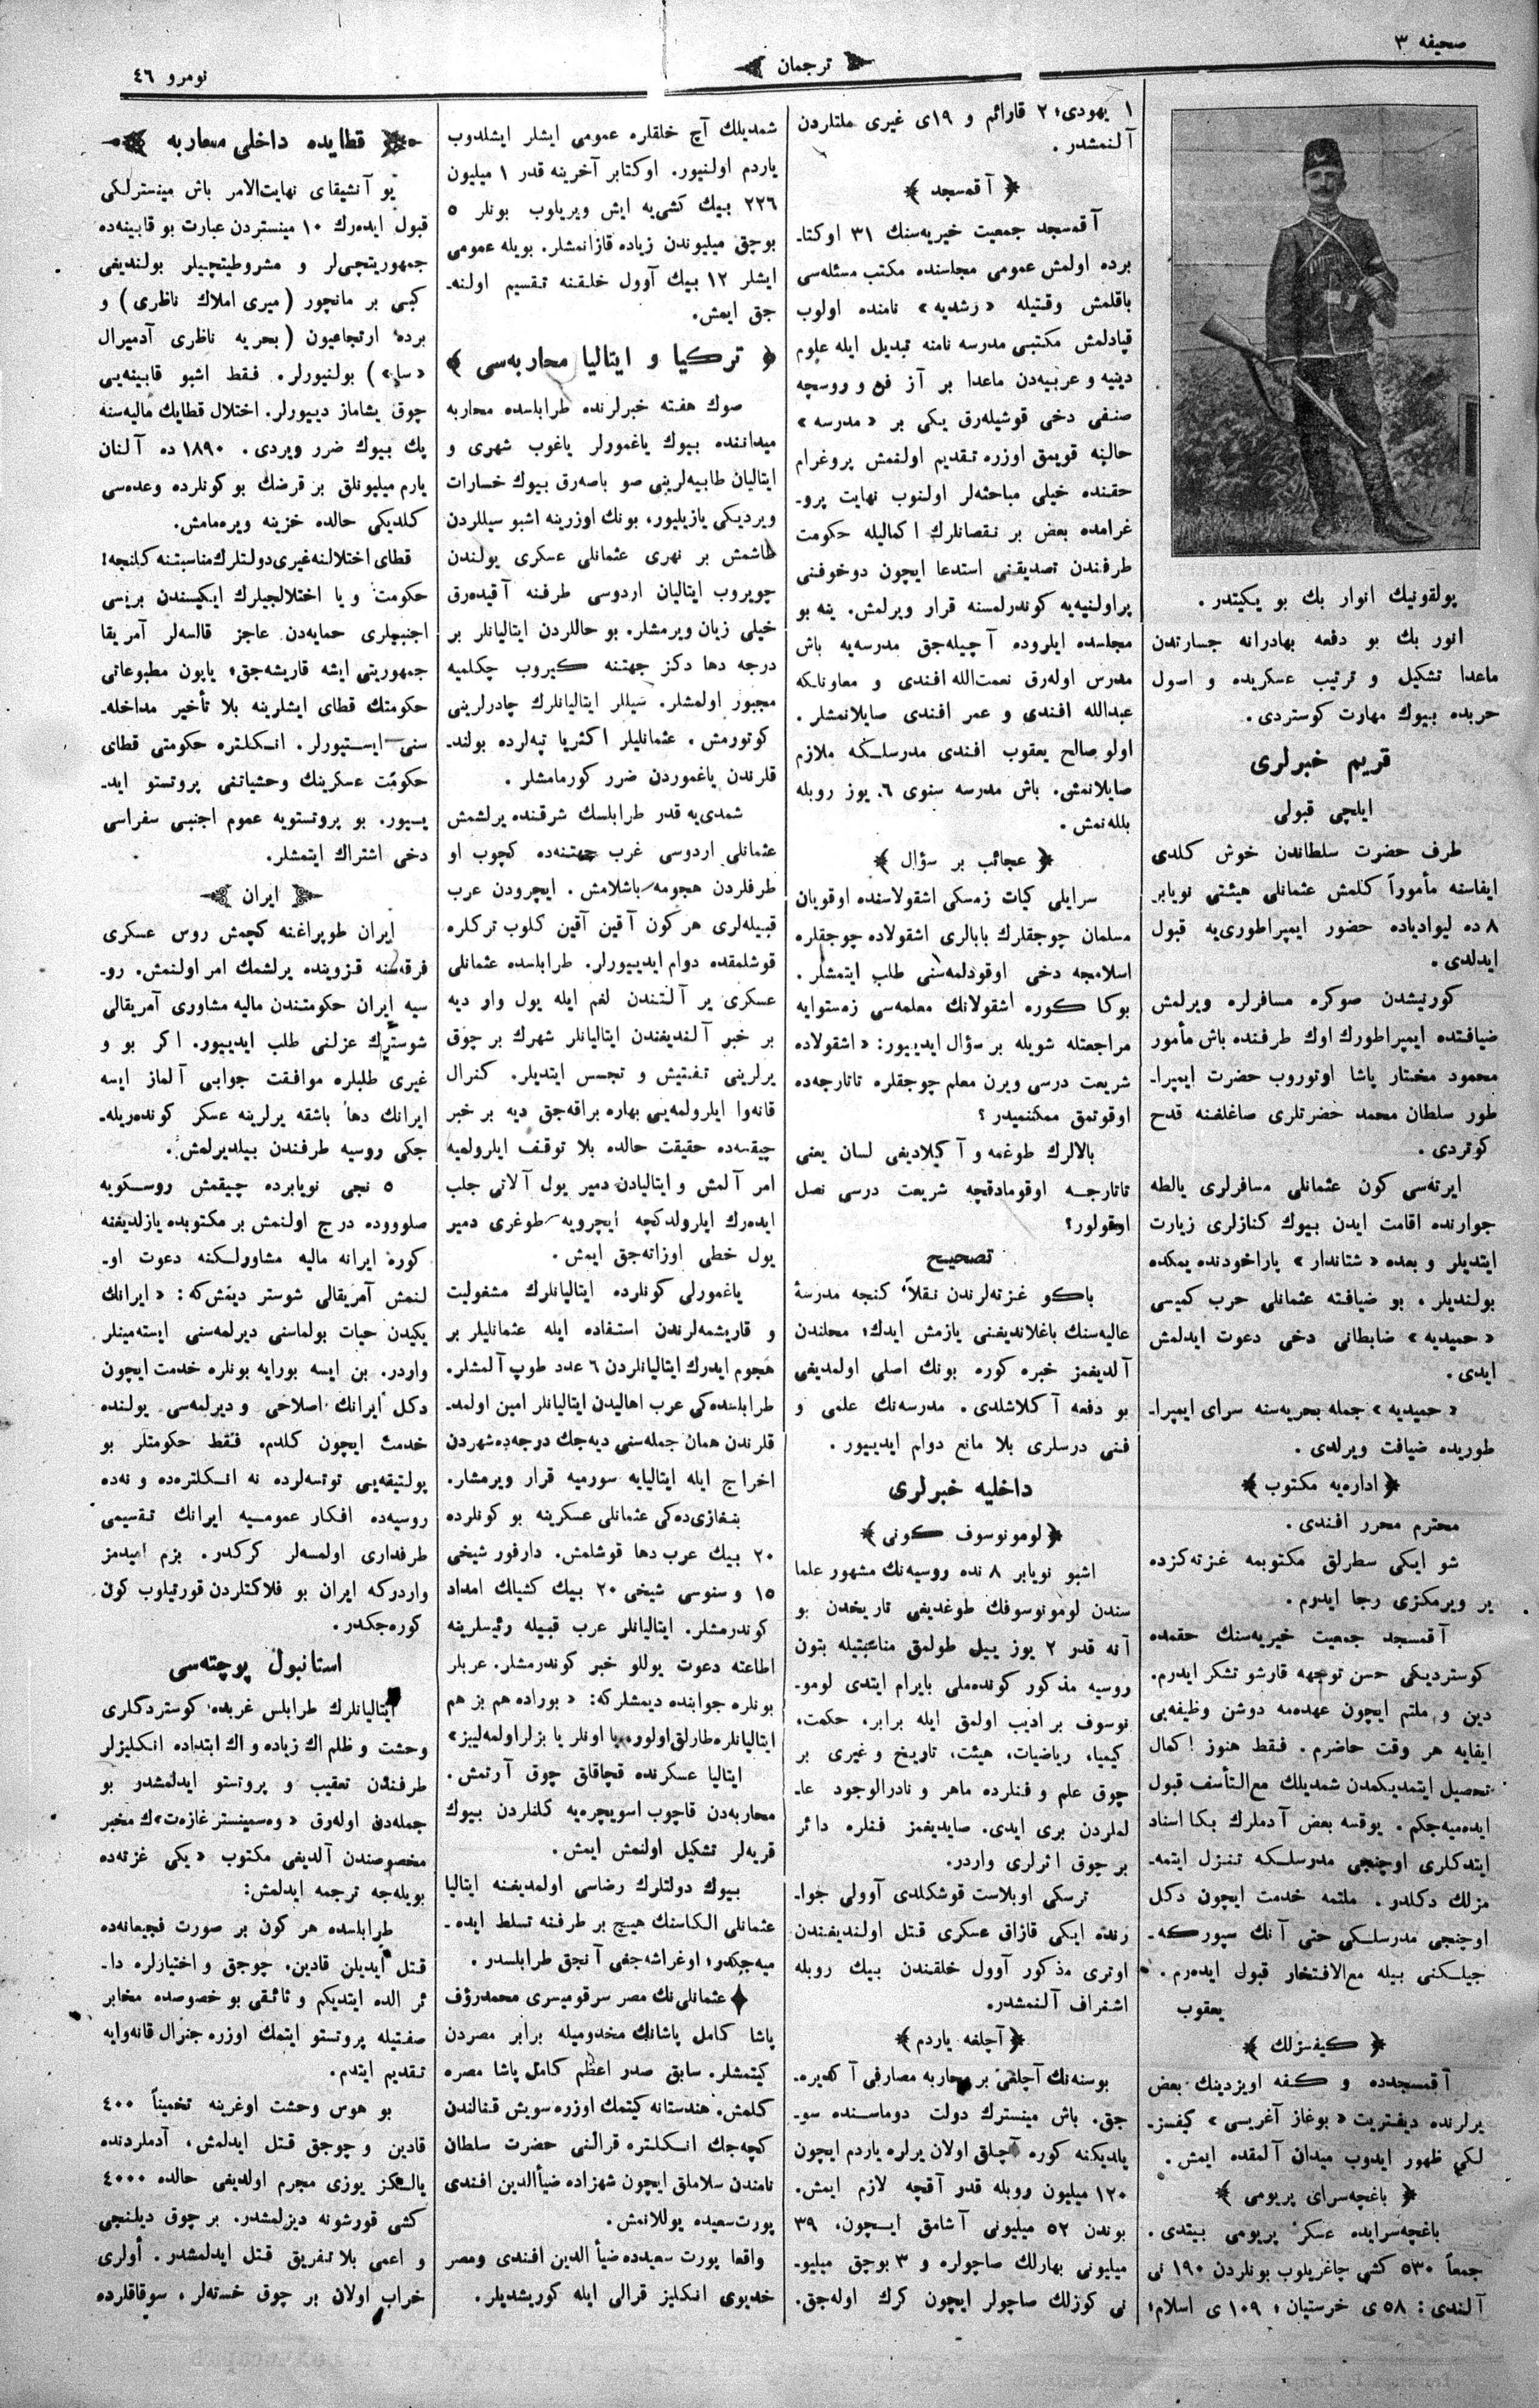 صحیفه ٣
ترجمان
نومرو ٤٦
پولقونیك انوار بك بو یكیتدر.
انور بك بو دفعه بهادرانه جسارتدن
ماعدا تشكیل و ترتیب عسكریده و اصول
حربده بیوك مهارت كوستردی.
قریم خبرلری
ایلچی قبولی
طرف حضرت سلطاندن خوش كلدی
ایفاسنه مأموراً كلمش عثمانلی هیئتی نویابر
٨ ده لیوادیاده حضور ایمپراطوری‌یه قبول
ایدلدی.
كورنیشدن صوكره مسافرلره ویرلمش
ضیافتده ایمپراطورك اوك طرفنده باش مأمور
محمود مختار پاشا اوتوروب حضرت ایمپرا‌ـ
طور سلطان محمد حضرتلری صاغلغنه قدح
كوتردی.
ایرته‌سی كون عثمانلی مسافرلری یالطه
جوارنده اقامت ایدن بیوك كنازلری زیارت
ایتدیلر و بعده «شتاندار» پاراخودنده یمكده
بولندیلر. بو ضیافته عثمانلی حرب كمیسی
«حمیدیه» ضابطانی دخی دعوت ایدلمش
ایدی.
«حمیدیه» جمله بحریه‌سنه سرای ایمپرا‌ـ
طوریده ضیافت ویرلدی.
اداره‌یه مكتوب
محترم محرر افندی.
شو ایكی سطرلق مكتوبمه غزته‌كزده
یر ویرمكزی رجا ایدرم.
آقمسجد جمعیت خیریه‌سنك حقمده
كوستردیكی حسن توجهه قارشو تشكر ایدرم.
دین و ملتم ایچون عهدمه دوشن وظیفه‌یی
ایفایه هر وقت حاضرم. فقط هنوز اكمال
تحصیل ایتمدیكمدن شمدیلك مع‌التأسف قبول
ایده‌میه‌جكم. یوقسه بعض آدملرك بكا اسناد
ایتدكلری اوچنجی مدرسلكه تنزل ایتمه‌ـ
مزلك دكلدر. ملتمه خدمت ایچون دكل
اوچنجی مدرسلكی حتی آنك سپوركه‌ـ
جیلكنی بیله مع‌الافتخار قبول ایده‌رم.
یعقوب
كیفسزلك
آقمسجدده و كفه اویزدینك بعض
یرلرنده دیفتریت «بوغاز آغریسی» كیفسز‌ـ
لكی ظهور ایدوب میدان آلمقده ایمش.
باغچه‌سرای پریومی
باغچه‌سرایده عسكر پریومی بیتدی.
جمعاً ٥٣٠ كشی چاغریلوب بونلردن ١٩٠ نی
آلندی: ٥٨ ی خرستیان، ١٠٩ ی اسلام،
١ یهودی، ٢ قارائم و ١٩ی غیری ملتلردن
آلنمشدر.
آقمسجد
آقمسجد جمعیت خیریه‌سنك ٣١ اوكتا‌ـ
برده اولمش عمومی مجلسنده مكتب مسئله‌سی
باقلمش وقتیله «رشدیه» نامنده اولوب
قپادلمش مكتبی مدرسه نامنه تبدیل ایله علوم
دینیه و عربیه‌دن ماعدا بر آز فن و روسچه
صنفی دخی قوشیله‌رق یكی بر «مدرسه»
حالینه قویمق اوزره تقدیم اولنمش پروغرام
حقنده خیلی مباحثه‌لر اولنوب نهایت پرو‌ـ
غرامده بعض بر نقصانلرك اكمالیله حكومت
طرفندن تصدیقنی استدعا ایچون دوخوفنی
پراولنیه‌یه كوندرلمسنه قرار ویرلمش. ینه بو
مجلسده ایلروده آچیله‌جق مدرسه‌یه باش
مدرس اوله‌رق نعمت‌الله افندی و معاونلكه
عبدالله افندی و عمر افندی صایلانمشلر.
اولو صالح یعقوب افندی مدرسلكه ملازم
صایلانمش. باش مدرسه سنوی ٦ یوز روبله
بلله‌نمش.
عجائب بر سؤال
سرایلی كیات زمسكی اشقولاسنده اوقویان
مسلمان چوجقلرك بابالری اشقولاده چوجقلره
اسلامجه دخی اوقودلمه‌سنی طلب ایتمشلر.
بوكا كوره اشقولانك معلمه‌سی زمستوایه
مراجعتله شویله بر سؤال ایدییور: «اشقولاده
شریعت درسی ویرن معلم چوجقلره تاتارجه‌ده
اوقوتمق ممكنمیدر؟
بالالرك طوغمه و آكلادیغی لسان یعنی
تاتارجه اوقومادقچه شریعت درسی نصل
اوقولور؟
تصحیح
باكو غزته‌لرندن نقلاً كنجه مدرسۀ
عالیه‌سنك باغلاندیغنی یازمش ایدك، محلندن
آلدیغمز خبره كوره بونك اصلی اولمدیغی
بو دفعه آكلاشلدی. مدرسه‌نك علمی و
فنی درسلری بلا مانع دوام ایدییور.
داخلیه خبرلری
لومونوسوف كونی
اشبو نویابر ٨ نده روسیه‌نك مشهور علما
سندن لومونوسوفك طوغدیغی تاریخدن بو
آنه قدر ٢ یوز ییل طولمق مناسبتیله بتون
روسیه مذكور كونده‌ملی بایرام ایتدی لومو‌ـ
نوسوف بر ادیب اولمق ایله برابر، حكمت،
كیمیا، ریاضیات، هیئت، تاریخ و غیری بر
چوق علم و فنلرده ماهر و نادرالوجود عا‌ـ
لملردن بری ایدی. صایدیغمز فنلره دائر
بر چوق اثرلری واردر.
ترسكی اوبلاست قوشكلدی آوولی جوا‌ـ
رنده ایكی قازاق عسكری قتل اولندیغندن
اوتری مذكور آوول خلقندن بیك روبله
اشتراف آلنمشدر.
آچلغه یاردم
بوسنه‌نك آچلغی بر محاربه مصارفی آكدیره‌ـ
جق. باش مینسترك دولت دوماسنده سو‌ـ
یلدیكنه كوره آچلق اولان یرلره یاردم ایچون
١٢٠ میلیون روبله قدر آقچه لازم ایمش.
بوندن ٥٢ میلیونی آشامق ایچون، ٣٩
میلیونی بهارلك صاچولره و ٣ بوچق میلیو‌ـ
نی كوزلك صاچولر ایچون كرك اوله‌جق.
شمدیلك آچ خلقلره عمومی ایشلر ایشلدوب
یاردم اولنیور. اوكتابر آخرینه قدر ١ میلیون
٢٢٦ بیك كشی‌یه ایش ویریلوب بونلر ٥
بوچق میلیوندن زیاده قازانمشلر. بویله عمومی
ایشلر ١٢ بیك آوول خلقنه تقسیم اولنه‌ـ
جق ایمش.
تركیا و ایتالیا محاربه‌سی
صوك هفته خبرلرنده طرابلسده محاربه
میداننده بیوك یاغمورلر یاغوب شهری و
ایتالیان طابیه‌لرینی صو باصه‌رق بیوك خسارات
ویردیكی یازیلیور، بونك اوزرینه اشبو سیللردن
طاشمش بر نهری عثمانلی عسكری یولندن
چویروب ایتالیان اردوسی طرفنه آقیده‌رق
خیلی زیان ویرمشلر. بو حاللردن ایتالیانلر بر
درجه دها دكز جهتنه كیروب چكلمیه
مجبور اولمشلر. سیللر ایتالیانلرك چادرلرینی
كوتورمش. عثمانلیلر اكثریا تپه‌لرده بولند‌ـ
قلرندن یاغموردن ضرر كورمامشلر.
شمدی‌یه قدر طرابلسك شرقنده یرلشمش
عثمانلی اردوسی غرب جهتنه‌ده كچوب او
طرفلردن هجومه باشلامش. ایچرودن عرب
قبیله‌لری هر كون آقین آقین كلوب تركلره
قوشلمقده دوام ایدییورلر. طرابلسده عثمانلی
عسكری یر آلتندن لغم ایله یول وار دیه
بر خبر آلندیغندن ایتالیانلر شهرك بر چوق
یرلرینی تفتیش و تجسس ایتدیلر. كنرال
قانه‌وا ایلرولمه‌یی بهاره براقه‌جق دیه بر خبر
چیقسه‌ده حقیقت حالده بلا توقف ایلرولمیه
امر آلمش و ایتالیادن دمیر یول آلاتی جلب
ایده‌رك ایلرولدكچه ایچرویه طوغری دمیر
یول خطی اوزاته‌جق ایمش.
یاغمورلی كونلرده ایتالیانلرك مشغولیت
و قاریشمه‌لرندن استفاده ایله عثمانلیلر بر
هجوم ایدرك ایتالیانلردن ٦ عدد طوپ آلمشلر.
طرابلسده‌كی عرب اهالیدن ایتالیانلر امین اولمد‌ـ
قلرندن همان جمله‌سنی دیه‌جك درجه‌ده شهردن
اخراج ایله ایتالیایه سورمیه قرار ویرمشلر.
بنغازی‌ده‌كی عثمانلی عسكرینه بو كونلرده
٢٠ بیك عرب دها قوشلمش. دارفور شیخی
١٥ و سنوسی شیخی ٢٠ بیك كشیلك امداد
كوندرمشلر. ایتالیانلر عرب قبیله رئیسلرینه
اطاعته دعوت یوللو خبر كوندرمشلر. عربلر
بونلره جوابنده دیمشلركه: «بوراده هم بز هم
ایتالیانلره طارلق اولور، یا اونلر یا بزلر اولمه‌لییز»
ایتالیا عسكرنده قچاقلق چوق آرتمش.
محاربه‌دن قاچوب اسویچره‌یه كلنلردن بیوك
قریه‌لر تشكیل اولنمش ایمش.
بیوك دولتلرك رضاسی اولمدیغنه ایتالیا
عثمانلی الكاسنك هیچ بر طرفنه تسلط ایده‌ـ
میه‌جكدر، اوغراشه‌جغی آنجق طرابلسدر.
عثمانلی‌نك مصر سرقومیسری محمد رؤف
پاشا كامل پاشانك مخدومیله برابر مصردن
كیتمشلر. سابق صدر اعظم كامل پاشا مصره
كلمش. هندستانه كیتمك اوزره سویش قنالندن
كچه‌جك انكلتره قرالنی حضرت سلطان
نامندن سلاملق ایچون شهزاده ضیأالدین افندی
پورت‌سعیده یوللانمش.
واقعا پورت سعیدده ضیأ الدین افندی ومصر
خدیوی انكلیز قرالی ایله كوریشدیلر.
قطایده داخلی محاربه
یو آنشیقای نهایت‌الامر باش مینسترلكی
قبول ایده‌رك ١٠ مینستردن عبارت بو قابینه‌ده
جمهوریتچی‌لر و مشروطیتجیلر بولندیغی
كبی بر مانچور (میری املاك ناظری) و
برده ارتجاعیون (بحریه ناظری آدمیرال
«سا») بولنیورلر. فقط اشبو قابینه‌یی
چوق یشاماز دییورلر. اختلال قطایك مالیه‌سنه
پك بیوك ضرر ویردی. ١٨٩٠ ده آلنان
یارم میلیونلق بر قرضك بو كونلرده وعده‌سی
كلدیكی حالده خزینه ویره‌مامش.
قطای اختلالنه غیری دولتلرك مناسبتنه كلنجه!
حكومت و یا اختلالجیلرك ایكیسندن بریسی
اجنبیلری حمایه‌دن عاجز قالسه‌لر آمریقا
جمهوریتی ایشه قاریشه‌جق، یاپون مطبوعاتی
حكومتك قطای ایشلرینه بلا تأخیر مداخله‌ـ
سنی ایستیورلر. انكلتره حكومتی قطای
حكومت عسكرینك وحشیاتنی پروتستو اید‌ـ
ییور. بو پروتستویه عموم اجنبی سفراسی
دخی اشتراك ایتمشلر.
ایران
ایران طوپراغنه كچمش روس عسكری
فرقه‌سنه قزوینده یرلشمك امر اولنمش. رو‌ـ
سیه ایران حكومتندن مالیه مشاوری آمریقالی
شوسترك عزلنی طلب ایدییور. اكر بو و
غیری طلبلره موافقت جوابی آلماز ایسه
ایرانك دها باشقه یرلرینه عسكر كونده‌ریله‌ـ
جكی روسیه طرفندن بیلدیرلمش.
٥ نجی نویابرده چیقمش روسكویه
صلووده درج اولنمش بر مكتوبده یازلدیغنه
كوره ایرانه مالیه مشاورلكنه دعوت او‌ـ
لنمش آمریقالی شوستر دیمش‌كه: «ایرانك
یكیدن حیات بولماسنی دیرلمه‌سنی ایسته‌مینلر
واردر. بن ایسه بورایه بونلره خدمت ایچون
دكل ایرانك اصلاحی و دیرلمه‌سی یولنده
خدمت ایچون كلدم. فقط حكومتلر بو
پولتیقه‌یی توتسه‌لرده نه انكلتره‌ده و نه‌ده
روسیه‌ده افكار عمومیه ایرانك تقسیمی
طرفداری اولمسه‌لر كركدر. بزم امیدمز
واردركه ایران بو فلاكتلردن قورتیلوب كون
كوره‌جكدر.
استانبول پوچته‌سی
ایتالیانلرك طرابلس غربده كوستردكلری
وحشت و ظلم اك زیاده و اك ابتداده انكلیزلر
طرفندن تعقیب و پروتستو ایدلمشدر بو
جمله‌دن اوله‌رق «وه‌سمینستر غازه‌ت»ك مخبر
مخصوصندن آلدیغی مكتوب «یكی غزته‌ده
بویله‌جه ترجمه ایدلمش:
طرابلسده هر كون بر صورت فجیعانه‌ده
قتل ایدیلن قادین، چوجق و اختیارلره دا‌ـ
ئر الده ایتدیكم و ثائقی بو خصوصده مخابر
صفتیله پروتستو ایتمك اوزره جنرال قانه‌وایه
تقدیم ایتدم.
بو هوس وحشت اوغرینه تخمیناً ٤٠٠
قادین و چوجق قتل ایدلمش، آدملردنده
یالكز یوزی مجرم اولدیغی حالده ٤٠٠٠
كشی قورشونه دیزلمشدر. بر چوق دیلنجی
و اعمی بلا تفریق قتل ایدلمشدر. أولری
خراب اولان بر چوق خسته‌لر، سوقاقلرده